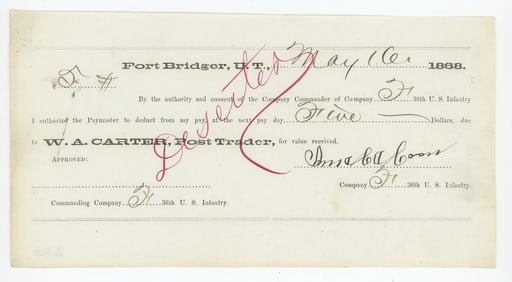 Fort Bridger, U.T., May 16 1868.
$5
By the authority and consent of the Company Commander of Company F 36th U. S. Infantry
I authorize the Paymaster to deduct from my pay, at the next pay day, Five Dollars, due
to W. A. CARTER, Post Trader, for value received.
Deserted
APPROVED:
Company F 36th U. S. Infantry.
Commanding Company F 36th U. S. Infantry.